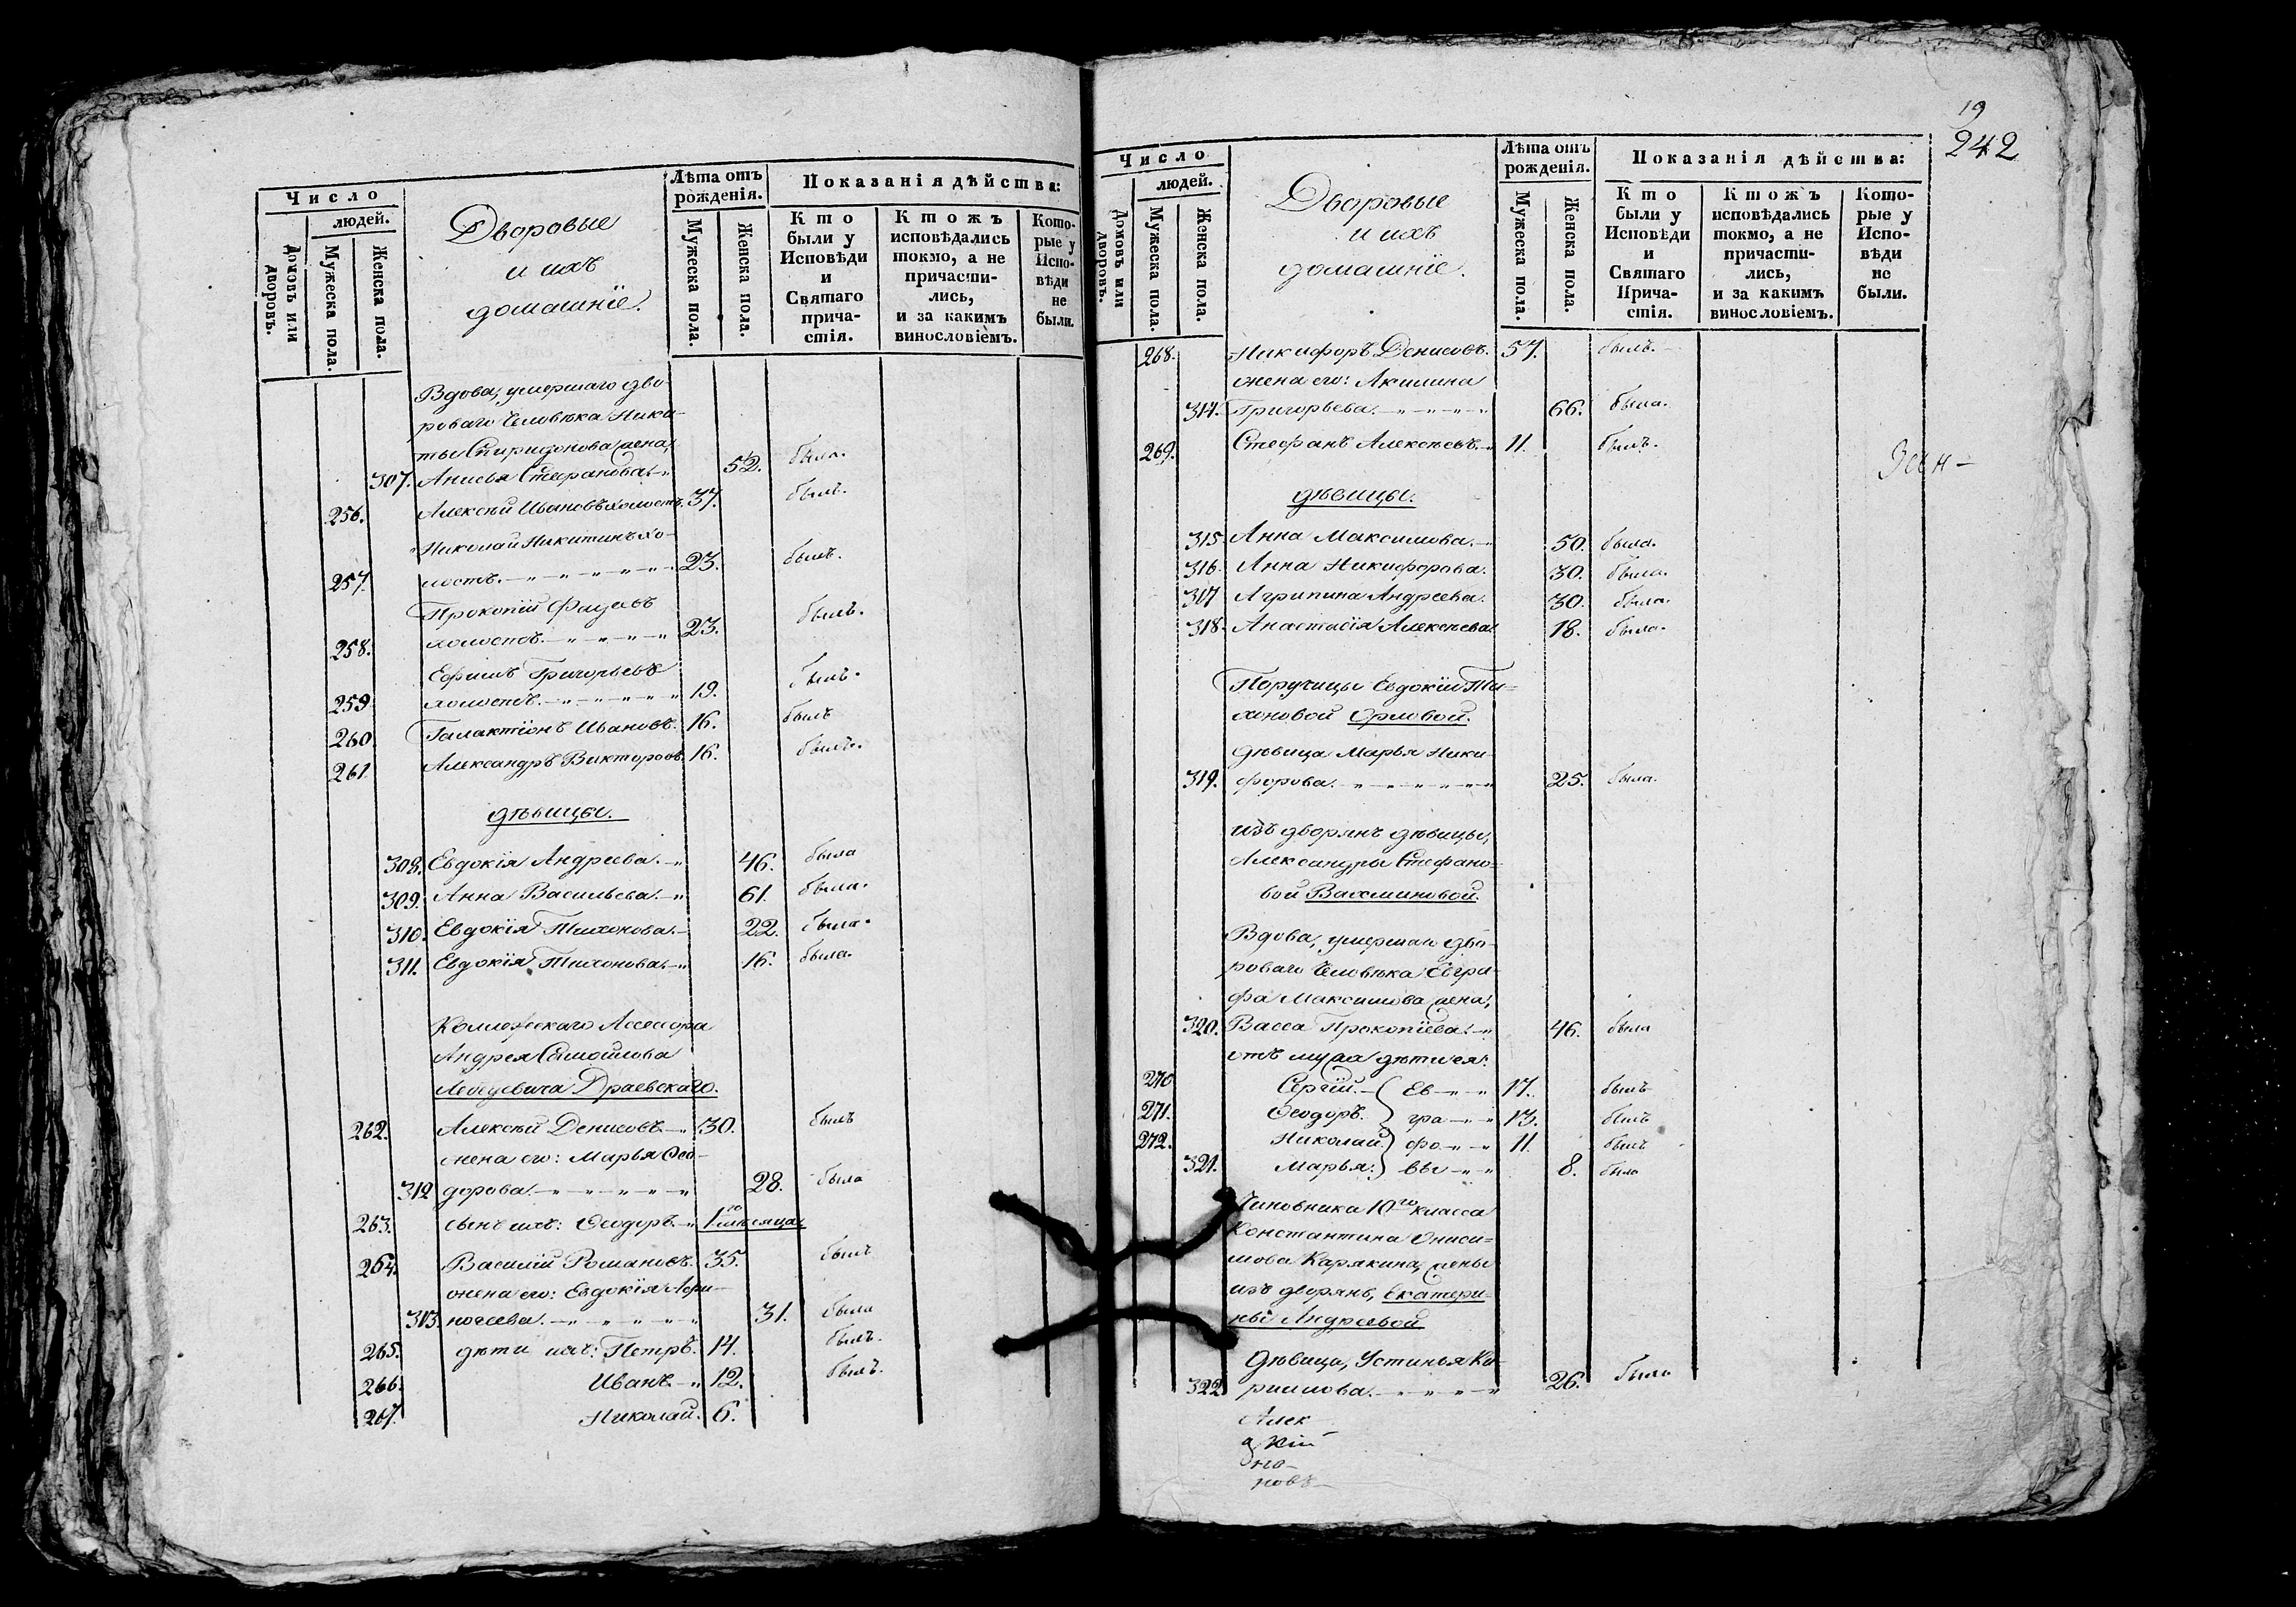 Число
людей.
Домовъ или дворовъ.
Мужеска пола.
Женска пола.
Дворовые
и ихъ
домашніе.
Лѣта отъ рожденія.
Мужеска пола.
Женска пола.
Показанія дѣйства:
Кто были у Исповѣди и Святаго причастія.
Ктожъ исповѣдались токмо, а не причастились, и за какимъ винословіемъ.
Которые у Исповѣди не были.
Вдова, умершаго дво-
роваго человѣка Ники-
ты Спиридонова жена,
307. Анисья Стефанова. 52. была.
256. Алексѣй Ивановъ холостъ. 37. былъ.
Николай Никитинъ хо-
257. лостъ. 23. былъ.
Прокопій
258. холостъ. 23. былъ.
Ефимъ Григорьевъ
259. холостъ. 19. былъ.
260. Галактіонъ Ивановъ. 16. былъ
261. Александръ Викторовъ. 16. былъ.
дѣвицы.
308. Евдокія Андреева. 46. была
309. Анна Васильева. 61. была.
310. Евдокія Тихонова. 22. была.
311. Евдокія Тихонова. 16. была.
Коллежскаго Ассесора
Андрея Самойлова
Драевскаго.
262. Алексѣй Денисовъ. 30. былъ
жена его: Марья Ѳео-
312 дорова. 28. была
263. сынъ ихъ: Ѳеодоръ. 1го мѣсяца
264. Василій Романовъ. 35. былъ
жена его: Евдокія
313. 31. была
265. дѣти ихъ: Петръ. 14. былъ.
266. Иванъ. 12. былъ.
267. Николай. 6.
19
242
Число
людей.
Домовъ или дворовъ.
Мужеска пола.
Женска пола.
Дворовые
и ихъ
домашніе.
Лѣта отъ рожденія.
Мужеска пола.
Женска пола.
Показанія дѣйства:
Кто были у Исповѣди и Святаго Причастія.
Ктожъ исповѣдались токмо, а не причастились, и за какимъ винословіемъ.
Которые у Исповѣди не были.
268. Никифоръ Денисовъ. 57. былъ.
жена его: Акилина
314. Григорьева. 66. была.
269. Стефанъ Алексѣевъ. 11. былъ.
дѣвицы.
315. Анна Максимова. 50. была.
316. Анна Никифорова. 30. была.
317 Агрипина Андреева. 30. была.
318. Анастасія Алексѣева. 18. была.
Поручицы Евдокіи Ти-
хоновой Орловой.
дѣвица Марья Ники-
319. форова. 25. была.
изъ дворянъ дѣвицы,
Александры Стефано-
вой Вахминовой.
Вдова, умершаго дво-
роваго человѣка Евгра-
фа Максимова жена,
320. Васса Прокопіева. 46. была
отъ мужа дѣти ея:
270 Сергій. Ев 17. былъ
271. Ѳеодоръ. гра 13. былъ
272. Николай. фо 11. былъ
321. Марья. вы 8. была
Чиновника 10го класса
Константина Ониси-
мова Карякина, жены
изъ дворянъ, Екатери-
ны Андреевой
Дѣвица, Устинья Ки-
322 рилова. 26. была
Алек
новъ